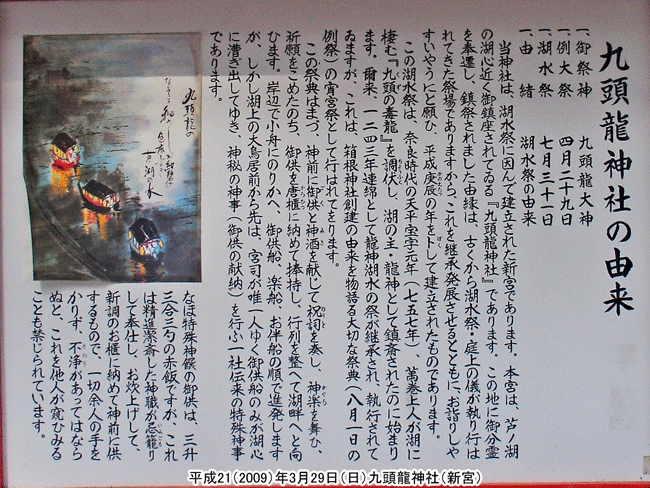 九頭龍神社の由来
一、御祭神　九頭龍大神
一、例大祭　四月二十九日
一、湖水祭　七月三十一日
一、由緒　湖水祭の由来
当神社は、湖水祭に因んで建立された新宮であります。本宮は、芦ノ湖
の湖心近く御鎮座されてゐる『九頭龍神社』であります。この地に御分霊
を奉遷し、鎮祭されました由縁は、古くから湖水祭・庭上の儀が執り行は
れてきた祭場でありますから、これを継承発展させるとともに、お詣りしや
すいやうにと願ひ、平成庚辰の年を卜して建立されたものであります。
この湖水祭は、奈良時代の天平宝字元年（七五七年）、萬巻上人が湖に
棲む『九頭の毒龍』を調伏し、湖の主・龍神として鎮斎されたのに始まり
ます。爾来、一二四三年連綿として龍神湖水の祭が継承され、執行されて
ゐますが、これは、箱根神社創建の由来を物語る大切な祭典（八月一日の
例祭）の宵宮祭として行はれてをります。
この祭典はまづ、神前に御供と神酒を献じて祝詞を奏し、神楽を舞ひ、
祈願をこめたのち、御供を唐櫃に納めて捧持し、行列を整へて湖畔へと向
ひます。岸辺で小舟にのりかへ、御供船、楽船、お伴船の順で進発します
が、しかし湖上の大鳥居前から先は、宮司が唯一人ゆく御供船のみが湖心
に漕ぎ出してゆき、神秘の神事（御供の献納）を行ふ一社伝来の特殊神事
であります。
なほ特殊神饌の御供は、三升
三合三勺の赤飯ですが、これ
は精進潔斎した神職が忌籠り
して奉仕し、お炊上げして、
新調のお櫃に納めて神前に供
するもので、一切余人の手を
かりず、不浄があってはなら
ぬと、これを他人が窺ひみる
ことも禁じられています。
九頭龍の
芦ノ湖
平成21(2009)年3月29日(日)九頭龍神社(新宮)